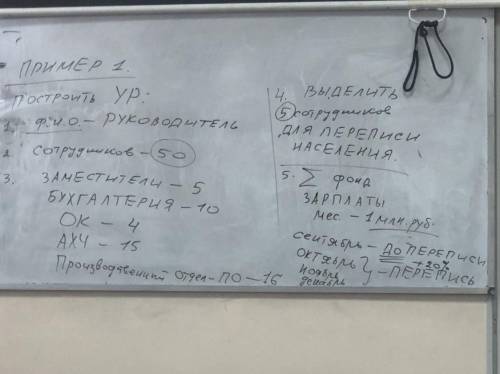 ПРИМЕР 1.
ПОСТРОИТЬ УР:
1. Ф.И.О. – РУКОВОДИТЕЛЬ
2. СОТРУДНИКОВ – 50
3. ЗАМЕСТИТЕЛИ – 5
БУХГАЛТЕРИЯ – 10
ОК – 4
АХЧ – 15
Производственный отдел – ПО – 16
4. ВЫДЕЛИТЬ
5 сотрудников
ДЛЯ ПЕРЕПИСИ
НАСЕЛЕНИЯ.
5. Σ фонд
ЗАРПЛАТЫ
мес. – 1 млн. руб.
сентябрь – ДО ПЕРЕПИСИ
октябрь
ноябрь
декабрь } – ПЕРЕПИСЬ
+20%